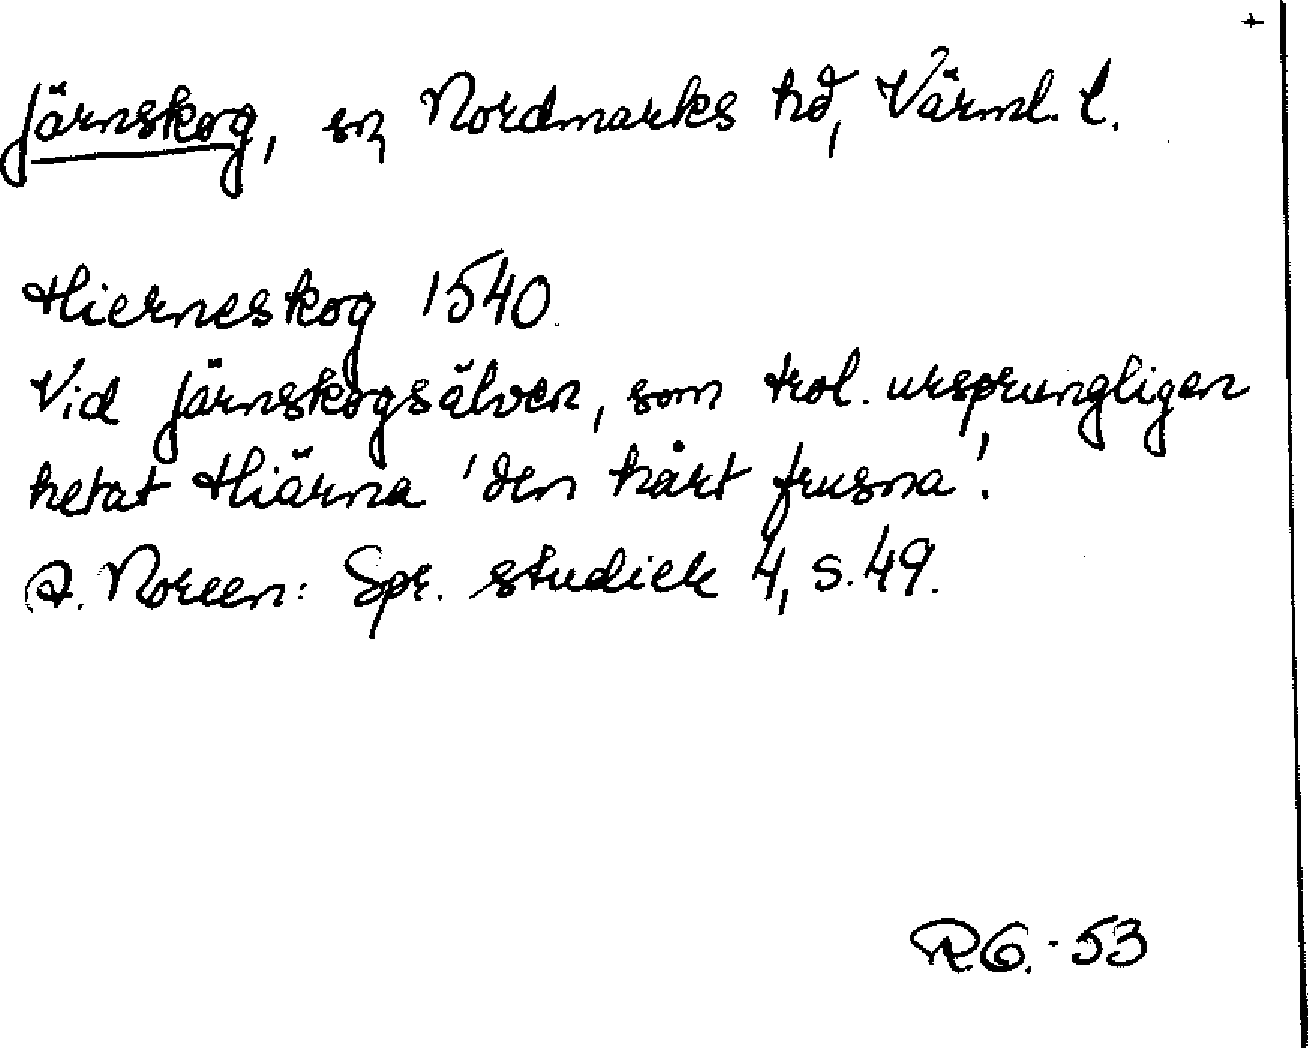 +
Järnskog, sn, Nordmarks hd, Värml. l.
Hierneskog 1540.
Vid Järnskogsälven, som trol. ursprungligen
hetat Hiärna 'den hårt frusna'.
A. Noreen: Spr. studier 4, s. 49.
RG.-53